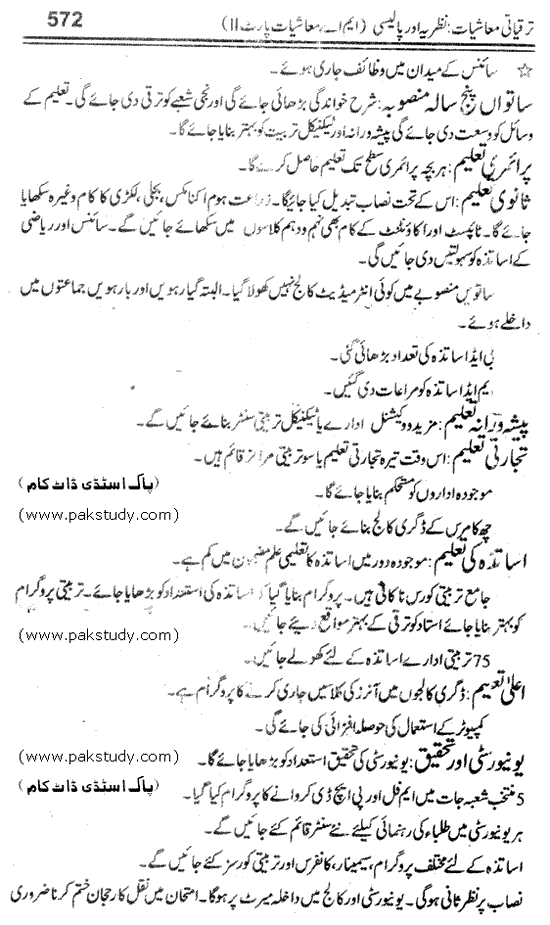 ترقیاتی معاشیات: نظریہ اور پالیسی (ایم اے معاشیات پارٹ II) 572
☆ سائنس کے میدان میں وظائف جاری ہوئے۔
ساتواں پنج سالہ منصوبہ: شرح خواندگی بڑھائی جائے گی اور نجی شعبے کو ترقی دی جائے گی۔ تعلیم کے
وسائل کو وسعت دی جائے گی پیشہ ورانہ اور ٹیکنیکل تربیت کو بہتر بنایا جائے گا۔
پرائمری تعلیم: ہر بچہ پرائمری سطح تک تعلیم حاصل کرے گا۔
ثانوی تعلیم: اس کے تحت نصاب تبدیل کیا جائیگا۔ زراعت ہوم اکنامکس، بجلی، لکڑی کا کام وغیرہ سکھایا
جائے گا۔ ٹائپسٹ اور اکاؤنٹنٹ کے کام بھی نہم و دہم کلاسوں میں سکھائے جائیں گے۔ سائنس اور ریاضی
کے اساتذہ کو سہولتیں دی جائیں گی۔
ساتویں منصوبے میں کوئی انٹرمیڈیٹ کالج نہیں کھولا گیا۔ البتہ گیارہویں اور بارہویں جماعتوں میں
داخلے ہوئے۔
بی ایڈ اساتذہ کی تعداد بڑھائی گئی۔
یم ایڈ اساتذہ کو مراعات دی گئیں۔
پیشہ ورانہ تعلیم: مزید ووکیشنل ادارے یا ٹیکنیکل تربیتی سنٹر بنائے جائیں گے۔
تجارتی تعلیم: اس وقت تیرہ تجارتی تعلیم یا سو تربیتی مراکز قائم ہیں۔
موجودہ اداروں کو مستحکم بنایا جائے گا۔ (پاک اسٹڈی ڈاٹ کام)
چھ کامرس کے ڈگری کالج بنائے جائیں گے۔ (www.pakstudy.com)
اساتذہ کی تعلیم: موجودہ دور میں اساتذہ کا تعلیمی علم مضمون میں کم ہے۔
جامع تربیتی کورس ناکافی ہیں۔ پروگرام بنایا گیا کہ اساتذہ کی استعداد کو بڑھایا جائے۔ تربیتی پروگرام
کو بہتر بنایا جائے استاد کو ترقی کے بہتر مواقع دیئے جائیں۔ (www.pakstudy.com)
75 تربیتی ادارے اساتذہ کے لئے کھولے جائیں۔
اعلیٰ تعلیم: ڈگری کالجوں میں آنرز کی کلاسیں جاری کرنے کا پروگرام ہے۔
کمپیوٹر کے استعمال کی حوصلہ افزائی کی جائے گی۔
یونیورسٹی اور تحقیق: یونیورسٹی کی تحقیق استعداد کو بڑھایا جائے گا۔ (www.pakstudy.com)
5 منتخب شعبہ جات میں ایم فل اور پی ایچ ڈی کروانے کا پروگرام کیا گیا۔ (پاک اسٹڈی ڈاٹ کام)
ہر یونیورسٹی میں طلباء کی رہنمائی کیلئے نئے سنٹر قائم کئے جائیں گے۔
اساتذہ کے لئے مختلف پروگرام، سیمینار، کانفرس اور تربیتی کورسز کئے جائیں گے۔
نصاب پر نظر ثانی ہوگی۔ یونیورسٹی اور کالج میں داخلہ میرٹ پر ہوگا۔ امتحان میں نقل کا رجحان ختم کرنا ضروری